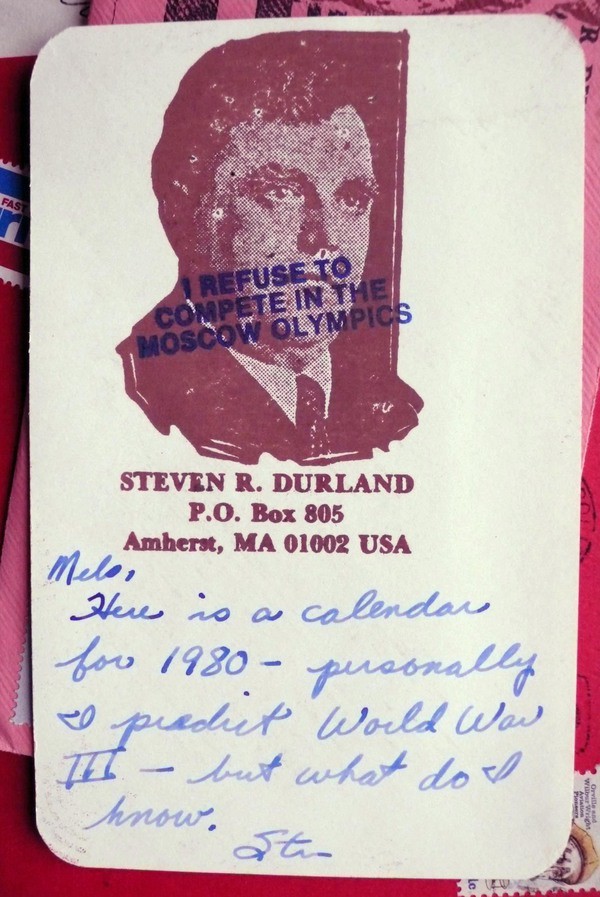 I REFUSE TO
COMPETE IN THE
MOSCOW OLYMPICS
STEVEN R. DURLAND
P.O. Box 805
Amherst, MA 01002 USA
Melo,
Here is a calendar
for 1980 – personally
I predict World War
III – but what do I
know.
FAST
Orville and
Wilbur Wright
Aviation
Pioneers